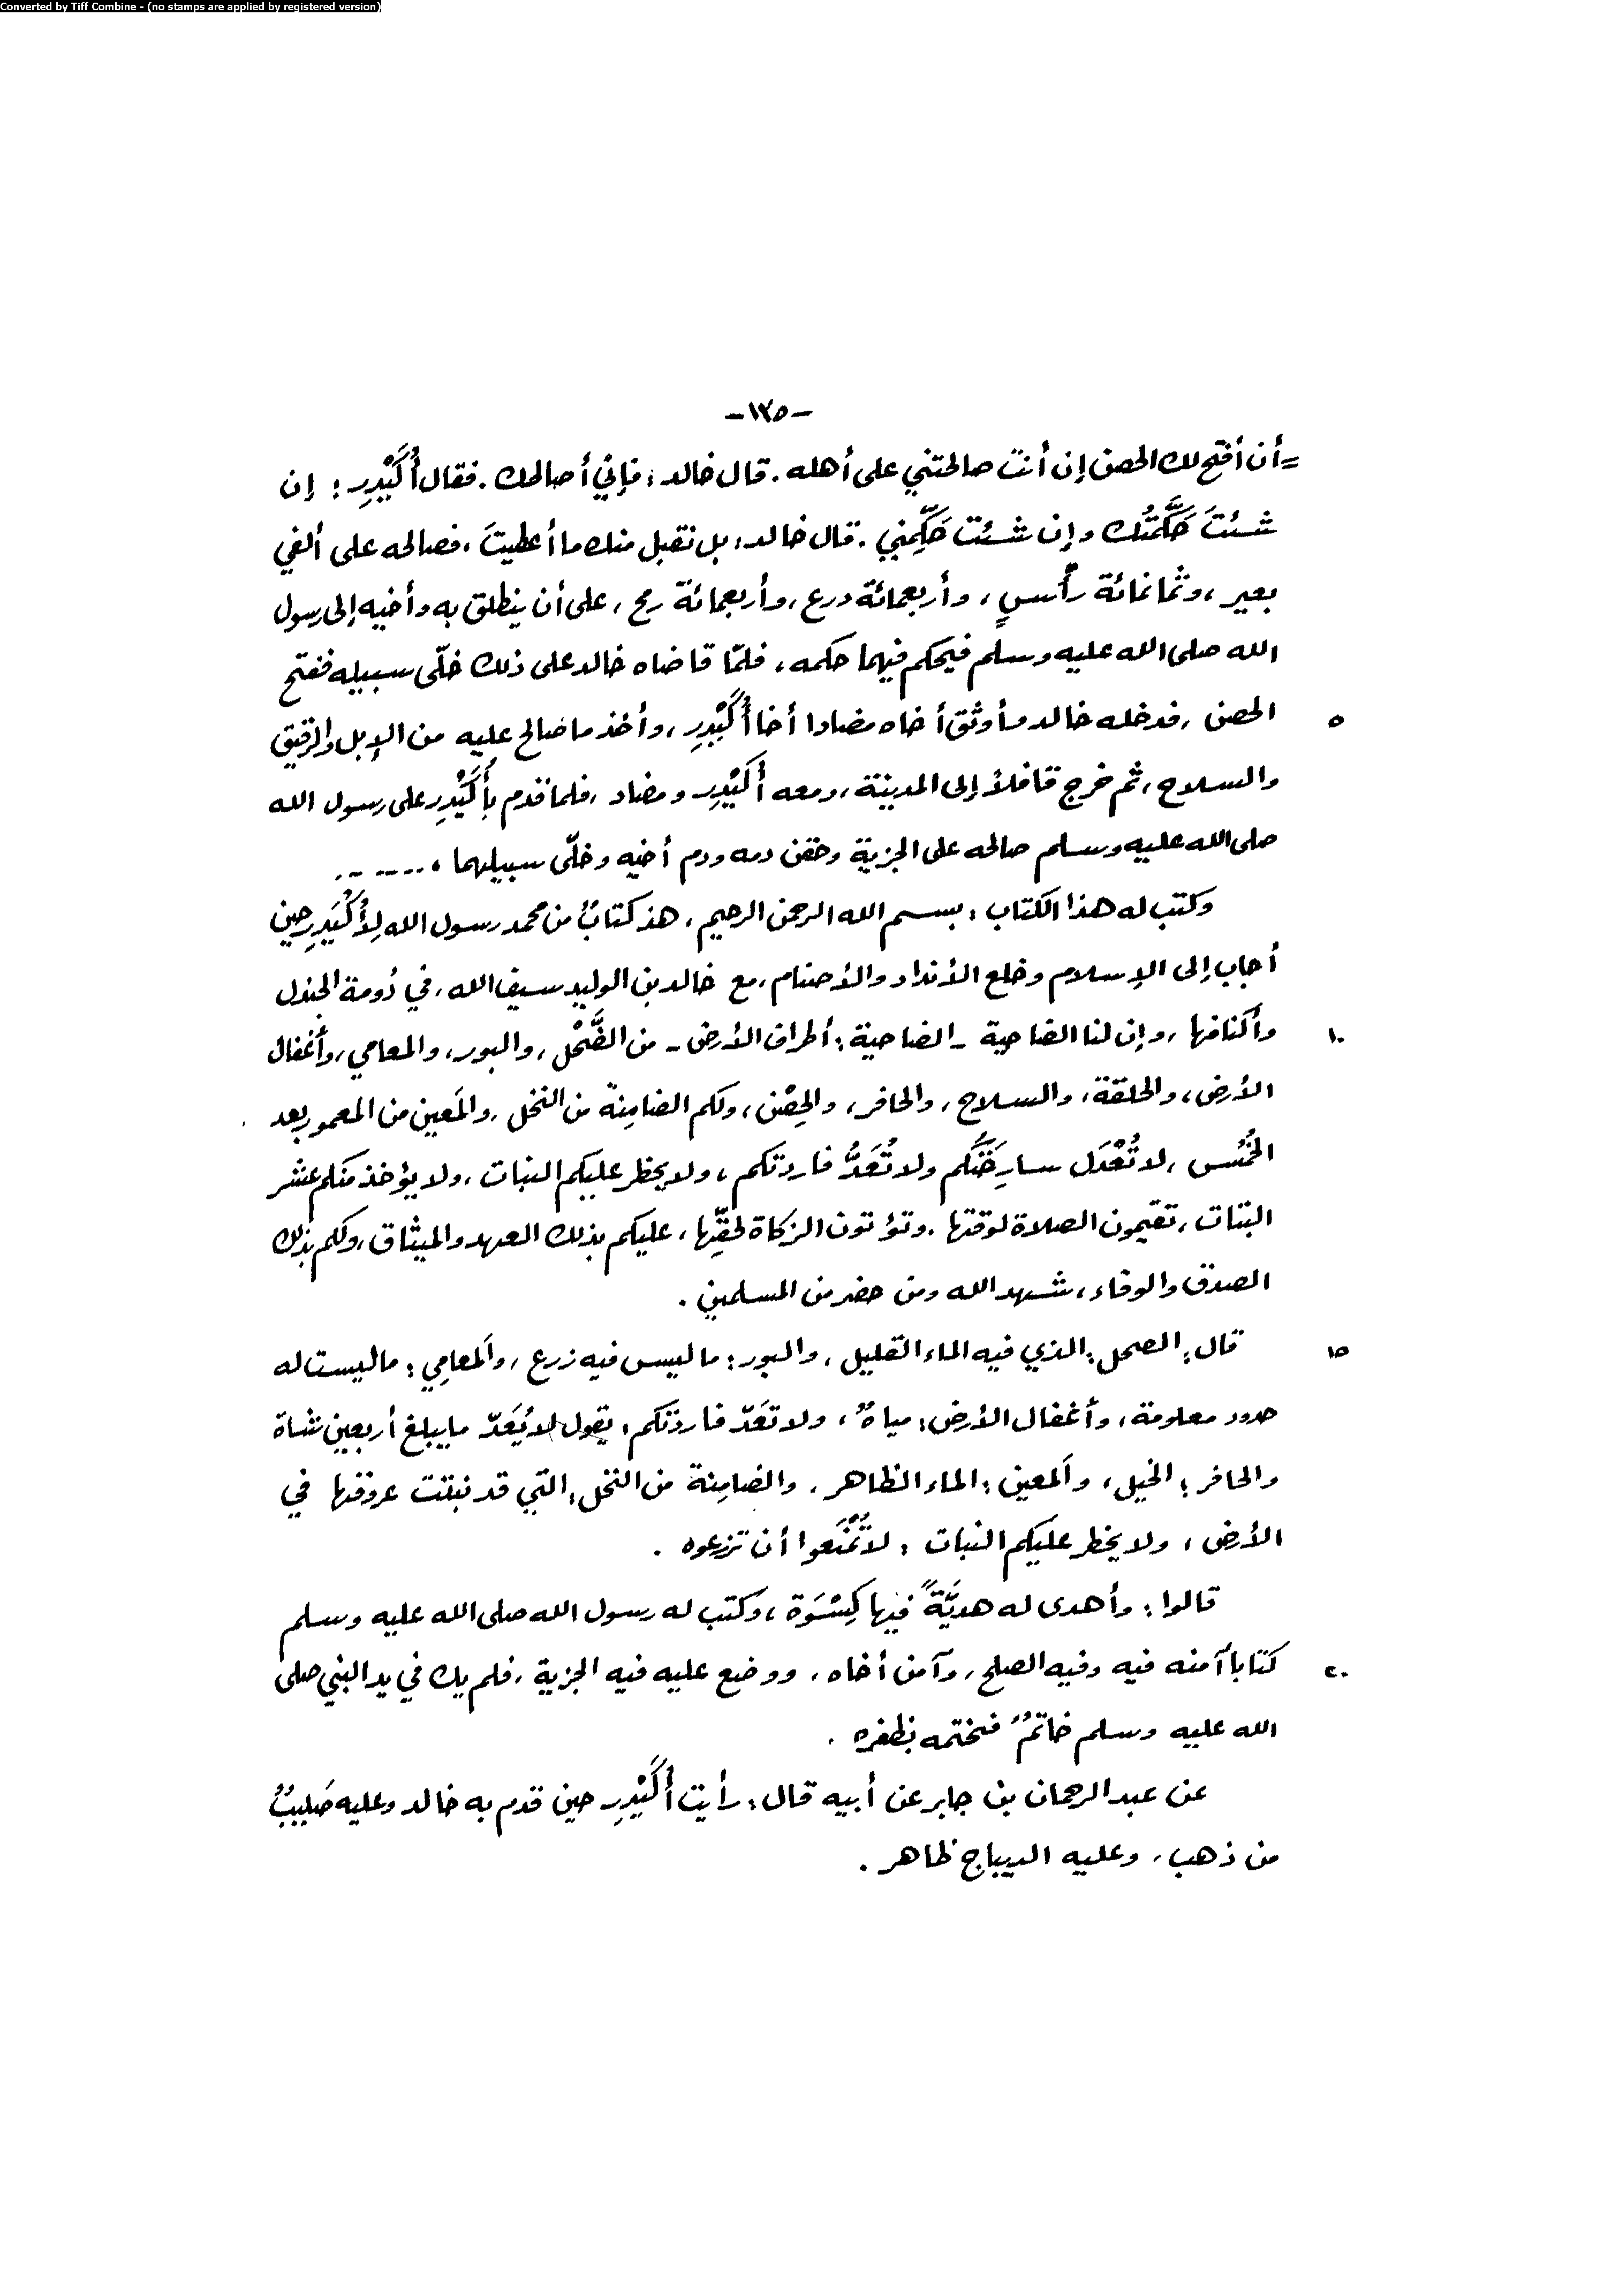 Converted by Tiff Combine - (no stamps are applied by registered version)
-١٢٥-
=أن أفتح لك الحصن إن أنت صالحتني على أهله. قال خالد: فإني أصالحك. فقال أُكَيْدِر: إن
شئتَ حَكَّمتُك وإن شئت حَكِّمني. قال خالد: بل نقبل منك ما أعطيتَ، فصالحه على ألفي
بعير، وثمانمائة رأسٍ، وأربعمائة درع، وأربعمائة رمح، على أن ينطلق به وأخيه إلى رسول
الله صلى الله عليه وسلم فيحكم فيهما حكمه، فلمّا قاضاه خالد على ذلك خلّى سبيله ففتح
٥ الحصن، فدخله خالد وأوثق أخاه مضادا أخا أُكَيْدِر، وأخذ ما صالح عليه من الإبل والرقيق
والسلاح، ثم خرج قافلاً إلى المدينة، ومعه أُكَيْدِر ومضاد، فلما قدم بأُكَيْدِر على رسول الله
صلى الله عليه وسلم صالحه على الجزية وحقن دمه ودم أخيه وخلّى سبيلهما، .....
وكتب له هذا الكتاب: بسم الله الرحمن الرحيم، هذ كتابٌ من محمد رسول الله لِأُكَيْدِر حين
أجاب إلى الإسلام وخلع الأنداد والأصنام، مع خالد بن الوليد سيف الله، في دُومة الجندل
١٠ وأكنافها، وإن لنا الضاحية - الضاحية: أطراف الأرض - من الضَّحْل، والبور، والمعامي، وأَغفال
الأرض، والحلقة، والسلاح، والحافر، والحِصْن، ولكم الضامِنة من النخل، والمَعين من المعمور بعد
الخُمْس، لا تُعْدَل سارِحَتُكم ولا تُعَدُّ فاردتكم، ولا يحظر عليكم النبات، ولا يؤخذ منكم عشر
البتات، تقيمون الصلاة لوقتها. وتؤتون الزكاة لحقِّها، عليكم بذلك العهد والميثاق، ولكم بذلك
الصدق والوفاء، شهد الله ومن حضر من المسلمين.
١٥ قال: الضحل: الذي فيه الماء القليل، والبور: ما ليس فيه زرع، والمعامِي: ما ليست له
حدود معلومة، وأغفال الأرض: مياهٌ، ولا تعَدّ فاردتكم: يقول لا يُعَدّ ما يبلغ أربعين شاة
والحافر: الخيل، والمعين: الماء الظاهر، والضامِنة من النخل: التي قد نبتت عروقها في
الأرض، ولا يحظر عليكم النبات: لا تُمْنَعوا أن تزرعوه.
قالوا: وأهدى له هديَّةً فيها كِسْوَة، وكتب له رسول الله صلى الله عليه وسلم
٢٠ كتاباً آمنه فيه وفيه الصلح، وآمن أخاه، ووضع عليه فيه الجزية، فلم يك في يد النبي صلى
الله عليه وسلم خاتمٌ فختمه بظفره.
عن عبد الرحمان بن جابر عن أبيه قال: رأيت أُكَيْدِر حين قدم به خالد وعليه صَليبٌ
من ذهب، وعليه الديباج ظاهر.